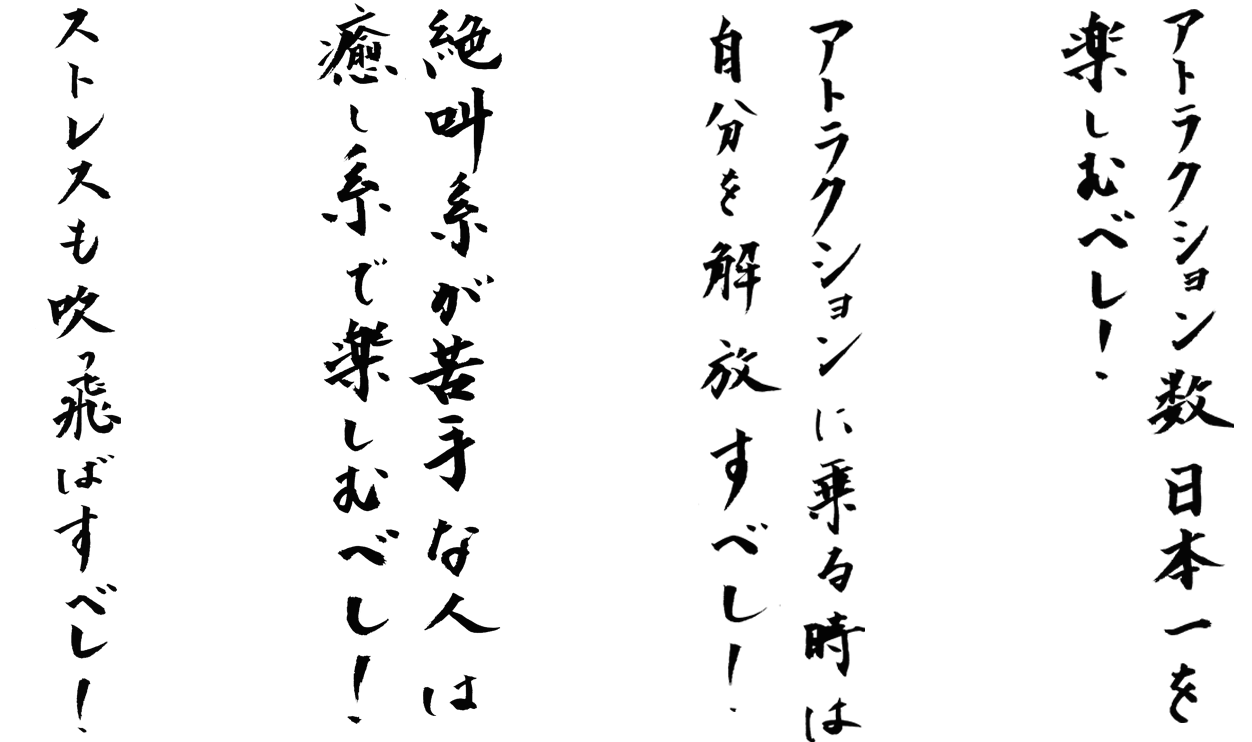 アトラクション数日本一を
楽しむべし！
アトラクションに乗る時は
自分を解放すべし！
絶叫系が苦手な人は
癒し系で楽しむべし！
ストレスも吹っ飛ばすべし！